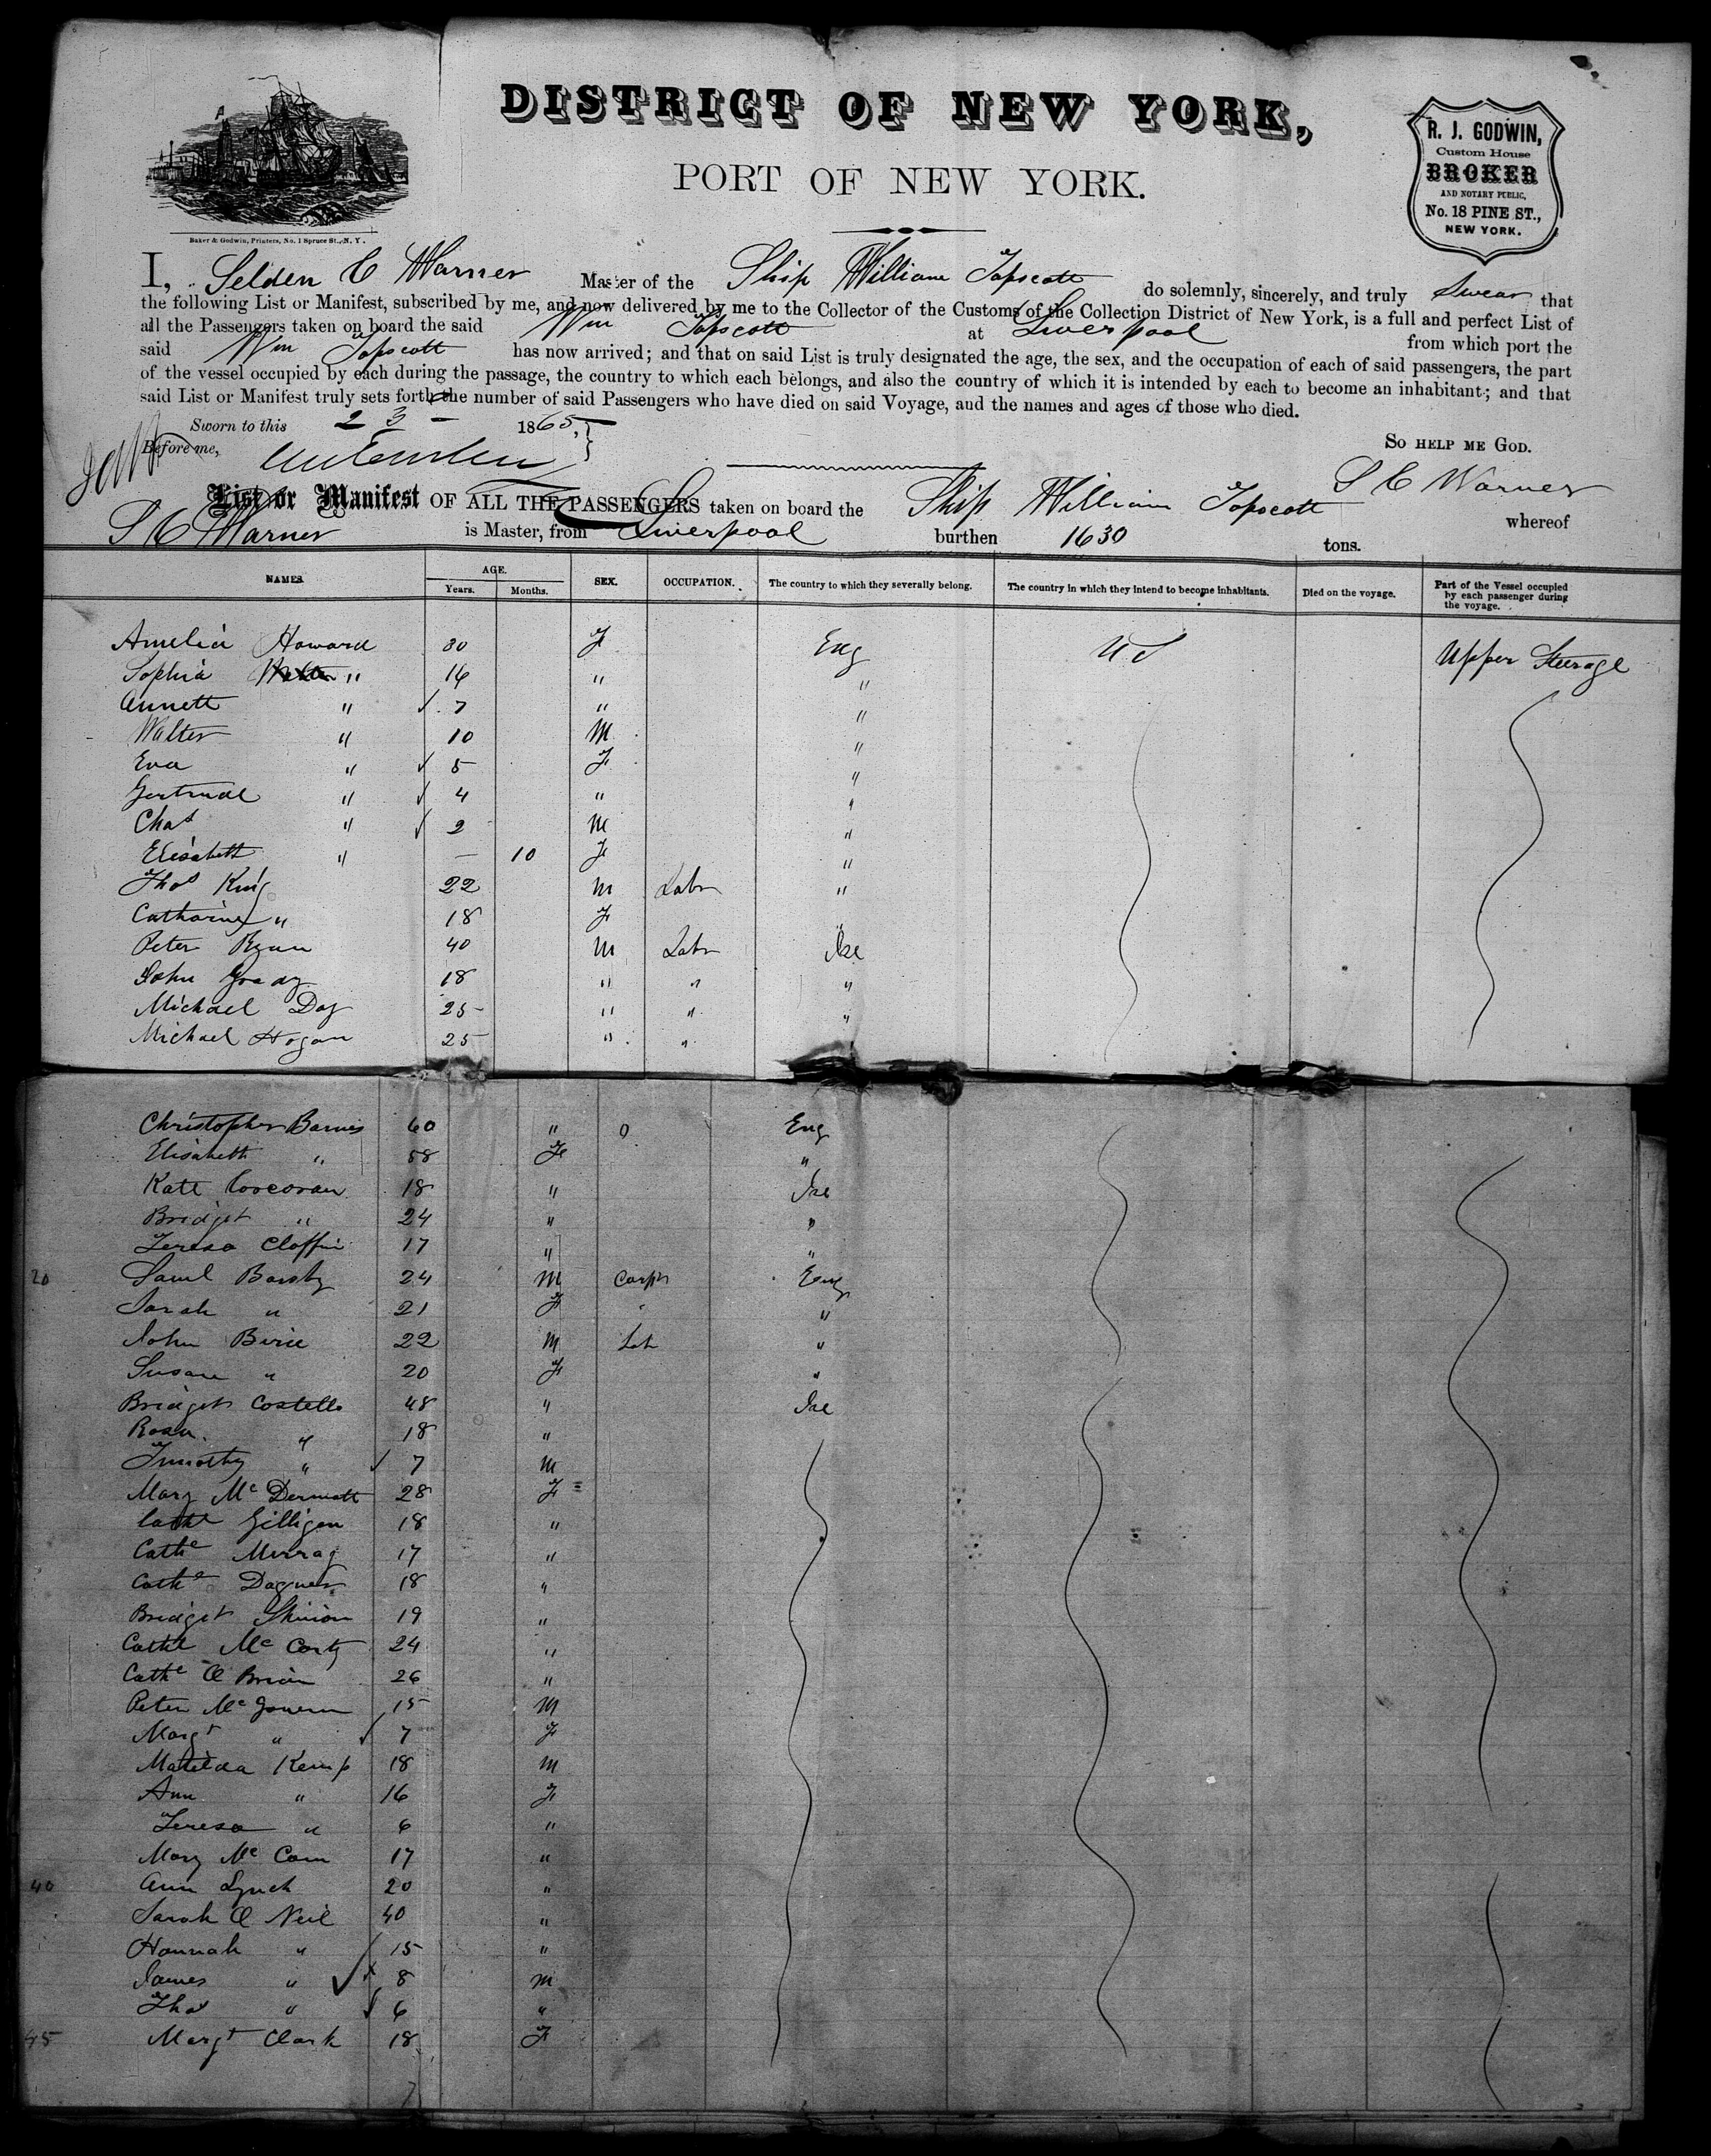 DISTRICT OF NEW YORK,
PORT OF NEW YORK.
R. J. GODWIN,
Custom House
BROKER
AND NOTARY PUBLIC,
No. 18 PINE ST.,
NEW YORK.
Baker & Godwin, Printers, No. 1 Spruce St., N. Y.
I, Selden C Warner Master of the Ship William Tapscott do solemnly, sincerely, and truly Swear that
the following List or Manifest, subscribed by me, and now delivered by me to the Collector of the Customs of the Collection District of New York, is a full and perfect List of
all the Passengers taken on board the said Wm Tapscott at Liverpool from which port the
said Wm Tapscott has now arrived; and that on said List is truly designated the age, the sex, and the occupation of each of said passengers, the part
of the vessel occupied by each during the passage, the country to which each belongs, and also the country of which it is intended by each to become an inhabitant; and that
said List or Manifest truly sets forth the number of said Passengers who have died on said Voyage, and the names and ages of those who died.
Sworn to this 23 1865,
Before me,
SO HELP ME GOD.
S C Warner
List or Manifest OF ALL THE PASSENGERS taken on board the Ship William Tapscott whereof
S C Warner is Master, from Liverpool burthen 1630 tons.
NAMES. AGE. Years. Months. SEX. OCCUPATION. The country to which they severally belong. The country in which they intend to become inhabitants. Died on the voyage. Part of the Vessel occupied by each passenger during the voyage.
Amelia Howard 30 F Eng U S Upper Steerage
Sophia " 16 " "
Annett " 7 " "
Walter " 10 M "
Eva " 5 F "
Gertrude " 4 " "
Chas " 2 M "
Elisabeth " — 10 F "
Thos King 22 M Labr "
Catharine " 18 F "
Peter Ryan 40 M Labr Ire
John Grady 18 " " "
Michael Day 25 " " "
Michael Hogan 25 " "
Christopher Barnes 60 " 0 Eng
Elisabeth " 58 F "
Kate Corcoran 18 " Ire
Bridget " 24 " "
Teresa 17 " "
20 Saml Barsby 24 M Carpr Eng
Sarah " 21 F "
John 22 M Lab "
Susan " 20 F "
Bridget Costello 48 " Ire
Rosa " 18 "
Timothy " 7 M
Mary Mc Dermott 28 F
Cathe Gilligan 18 "
Cathe Murray 17 "
Cathe 18 "
Bridget 19 "
Cathe Mc Carty 24 "
Cathe O Brien 26 "
Peter Mc Govern 15 M
Margt " 7 F
Matilda Kemp 18 M
Ann " 16 F
Teresa " 6 "
Mary Mc 17 "
40 Ann Lynch 20 "
Sarah O Neil 40 "
Hannah " 15 "
James " 8 M
Thos " 6 "
45 Margt Clark 18 F